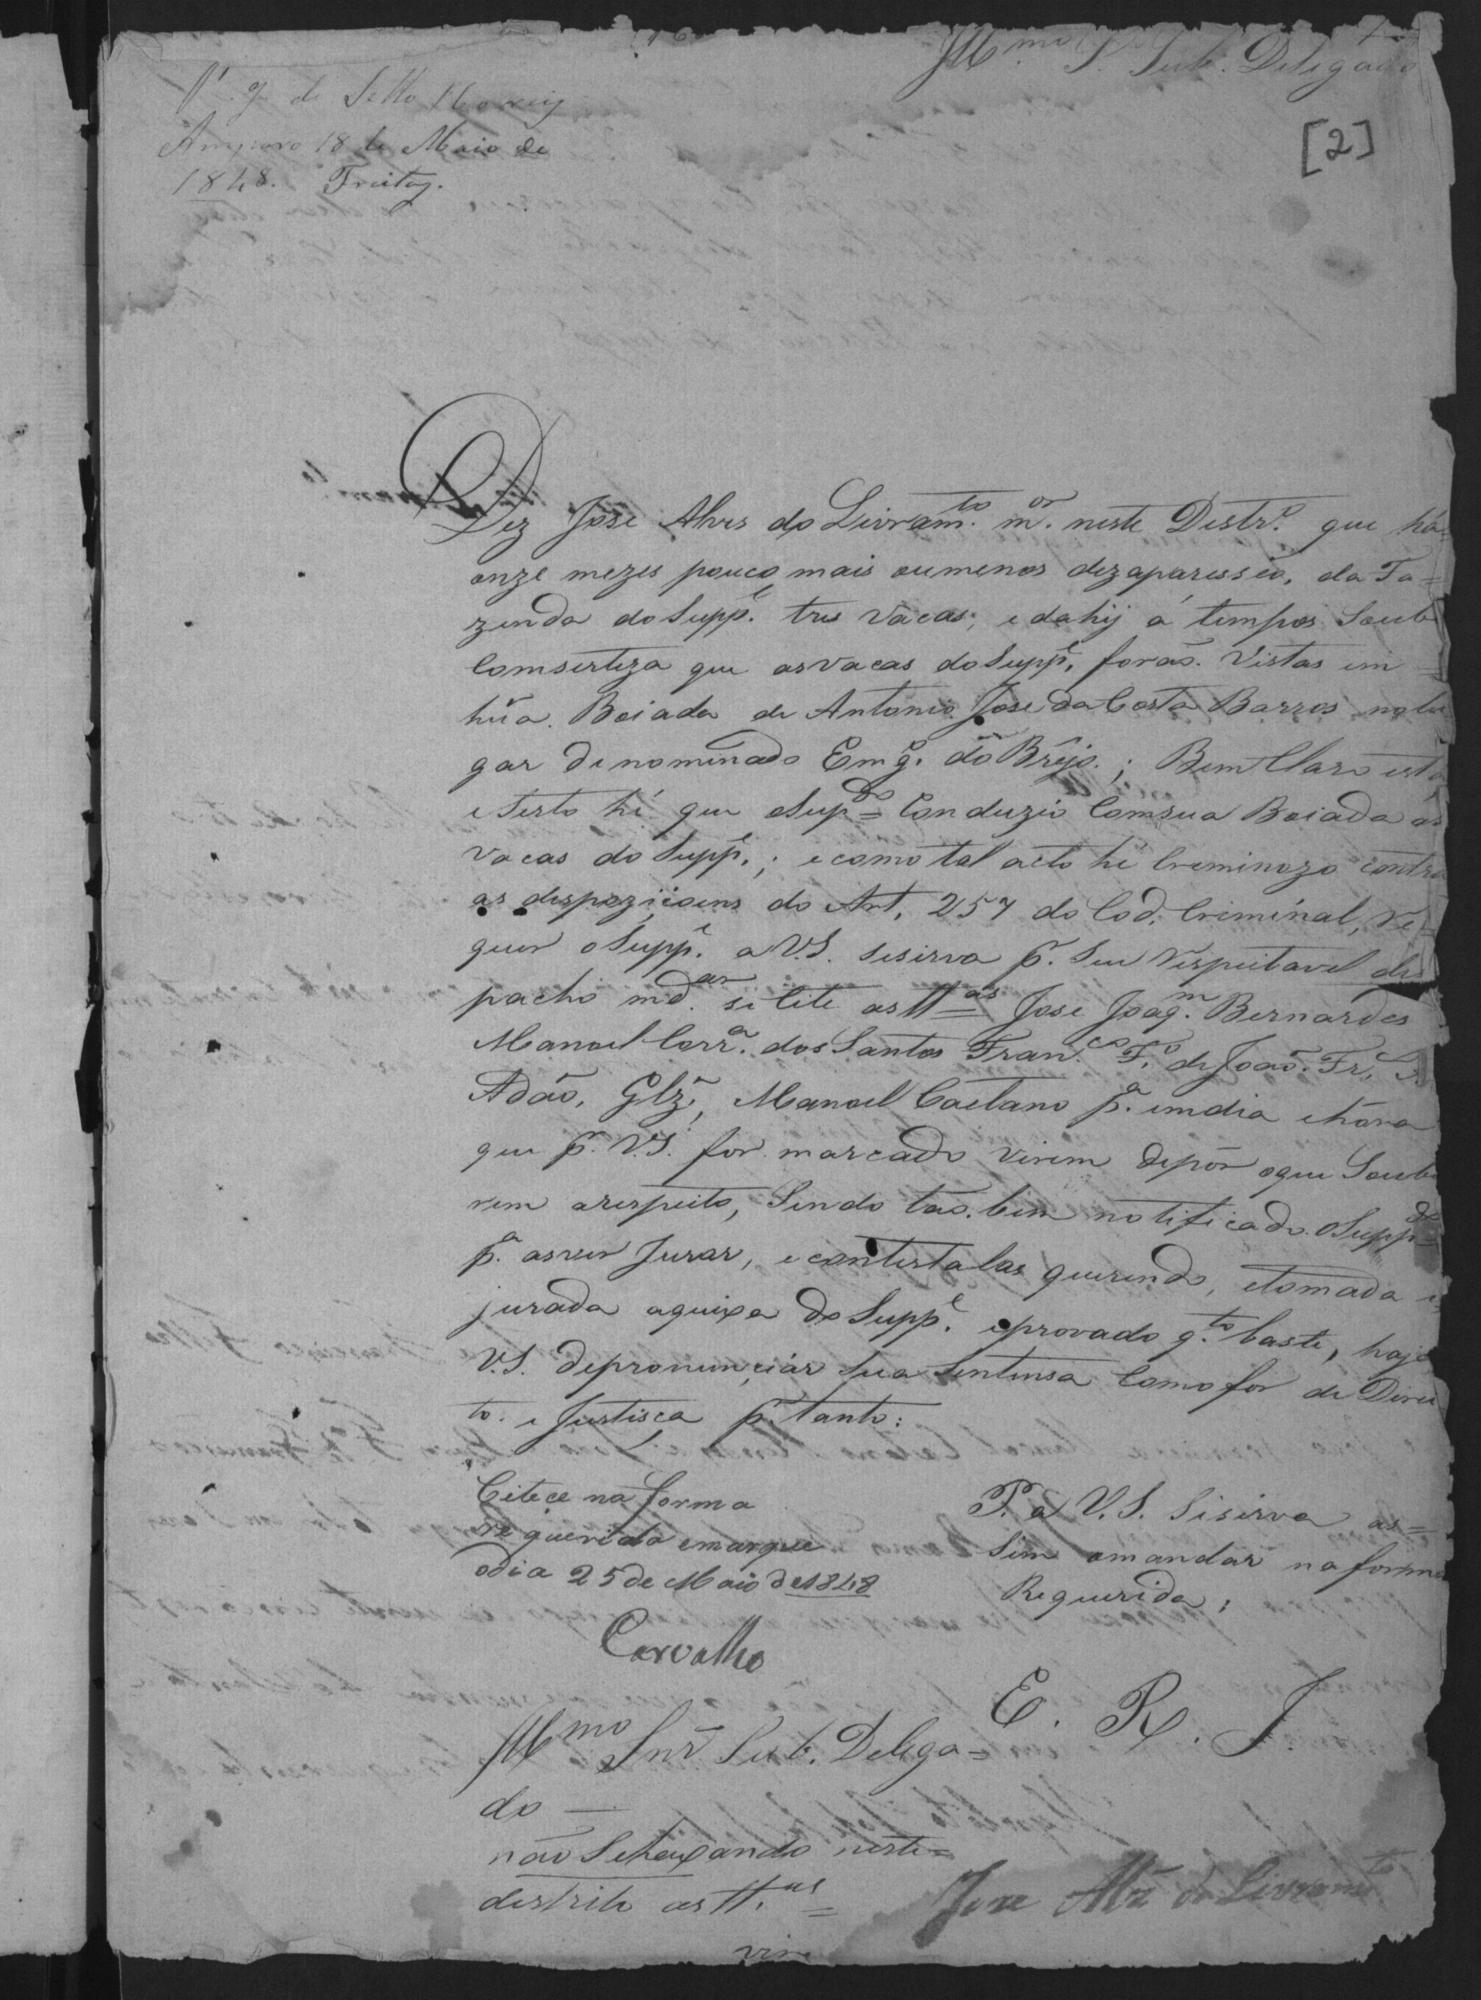 Illmo S. Sub. Delegado
[2]
Pg. de Sello
Amparo 18 de Maio de
1848. Freitag.
Diz Jose Alves do Livramto. mor. neste Distro. que há
onze mezes pouco mais oumenos dezaparesseo, da Fa=
zenda do Suppe. tres Vacas; e dahij á tempos Soube
Comserteza que asvacas do Suppe. forão. Vistas em
hũa. Boiada de Antonio Jose da Costa Barros nolu
gar denominado Emgo. do Brejo.; Bem Claro está
e Serto hé que oSupdo= Conduzio Comsua Boiada as
vacas do Suppe.; e como tal acto hé Creminozo contra
as dispoziçoens do Art. 257 do Cod. Criminal, re=
quer o Suppe. a V.S. sesirva pr. Seu Respeitavel des
pacho mdar. se Cite as ttas= Jose Joaqm. Bernardes
Manoel Corra. dos Santos Franco. Fo. de João. Fr.
Adão, Glz, Manoel Caetano pa. emdia ehóra
que pr. V.S. for marcado virem depôr oque Soube
rem arespeito, Sendo tão. bem notificado. oSuppdo=
pa. asver Jurar, e contestalas querendo, etomada e
jurada aqueixa do Suppe. eprovado qto. baste, haja
V.S. depronunciár sua Sentensa Como for de Direi
to. e Justisça pr. tanto:
Citece na forma
requerida emarque
odia 25 de Maio de 1848
Carvalho
P. a V. S. Sisirva as=
Sim omandar na forma
Requerida;
E. R. J.
Illmo Snr. Sub. Delega=
do —
não Seheixando neste=
destrito as ttas=
Jose Alz do Livramto
vire